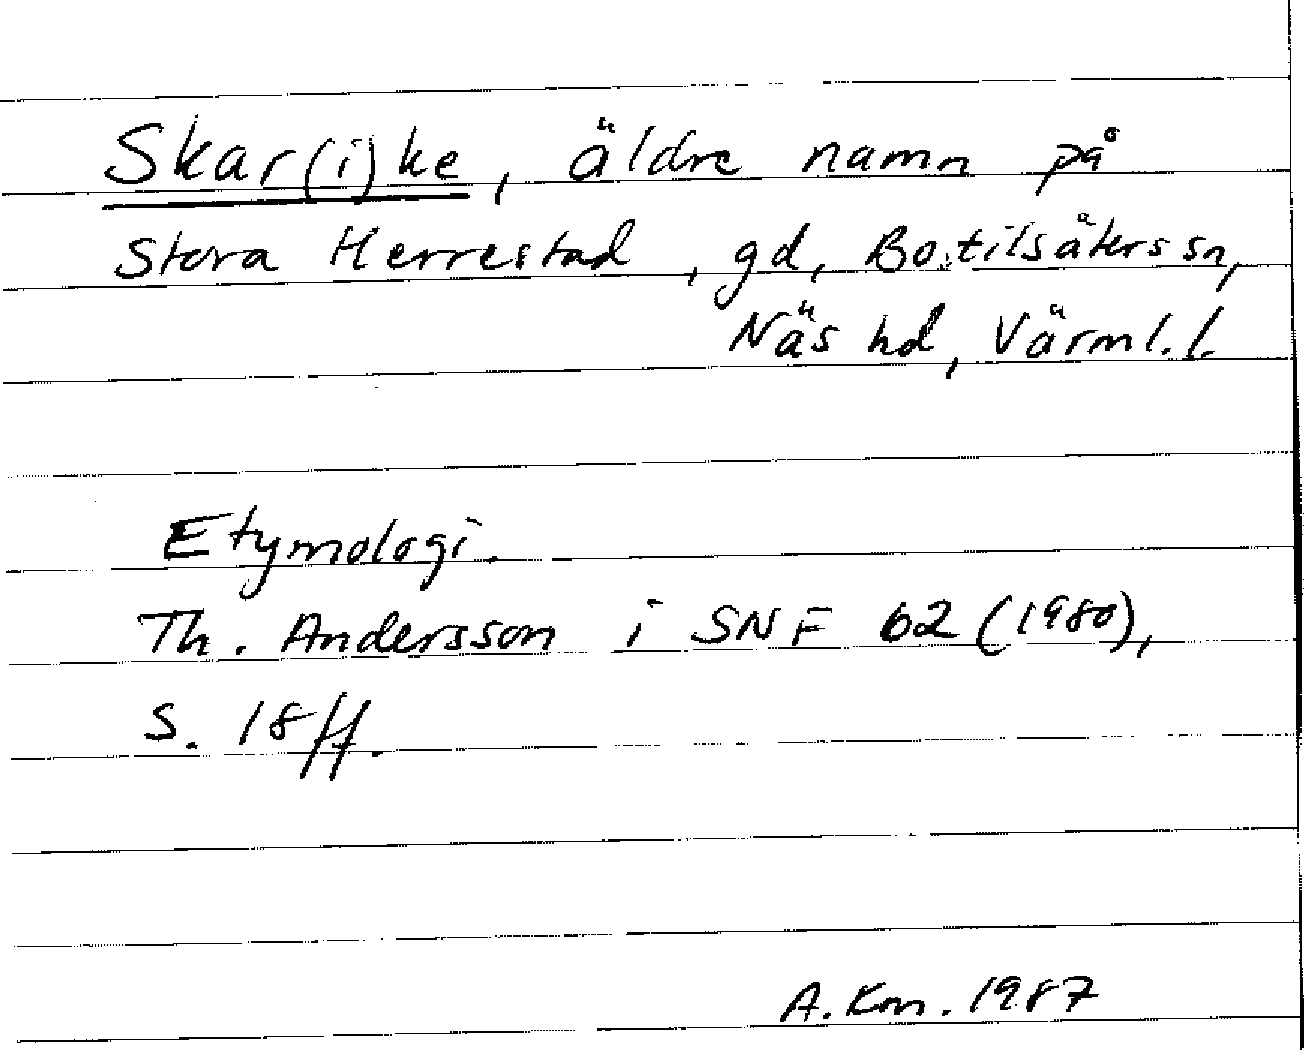 Skar(i)ke, äldre namn på
Stora Herrestad, gd, Botilsäters sn,
Näs hd, Värml. l.
Etymologi.
Th. Andersson i SNF 62 (1980),
s. 18 ff.
A. Km. 1987